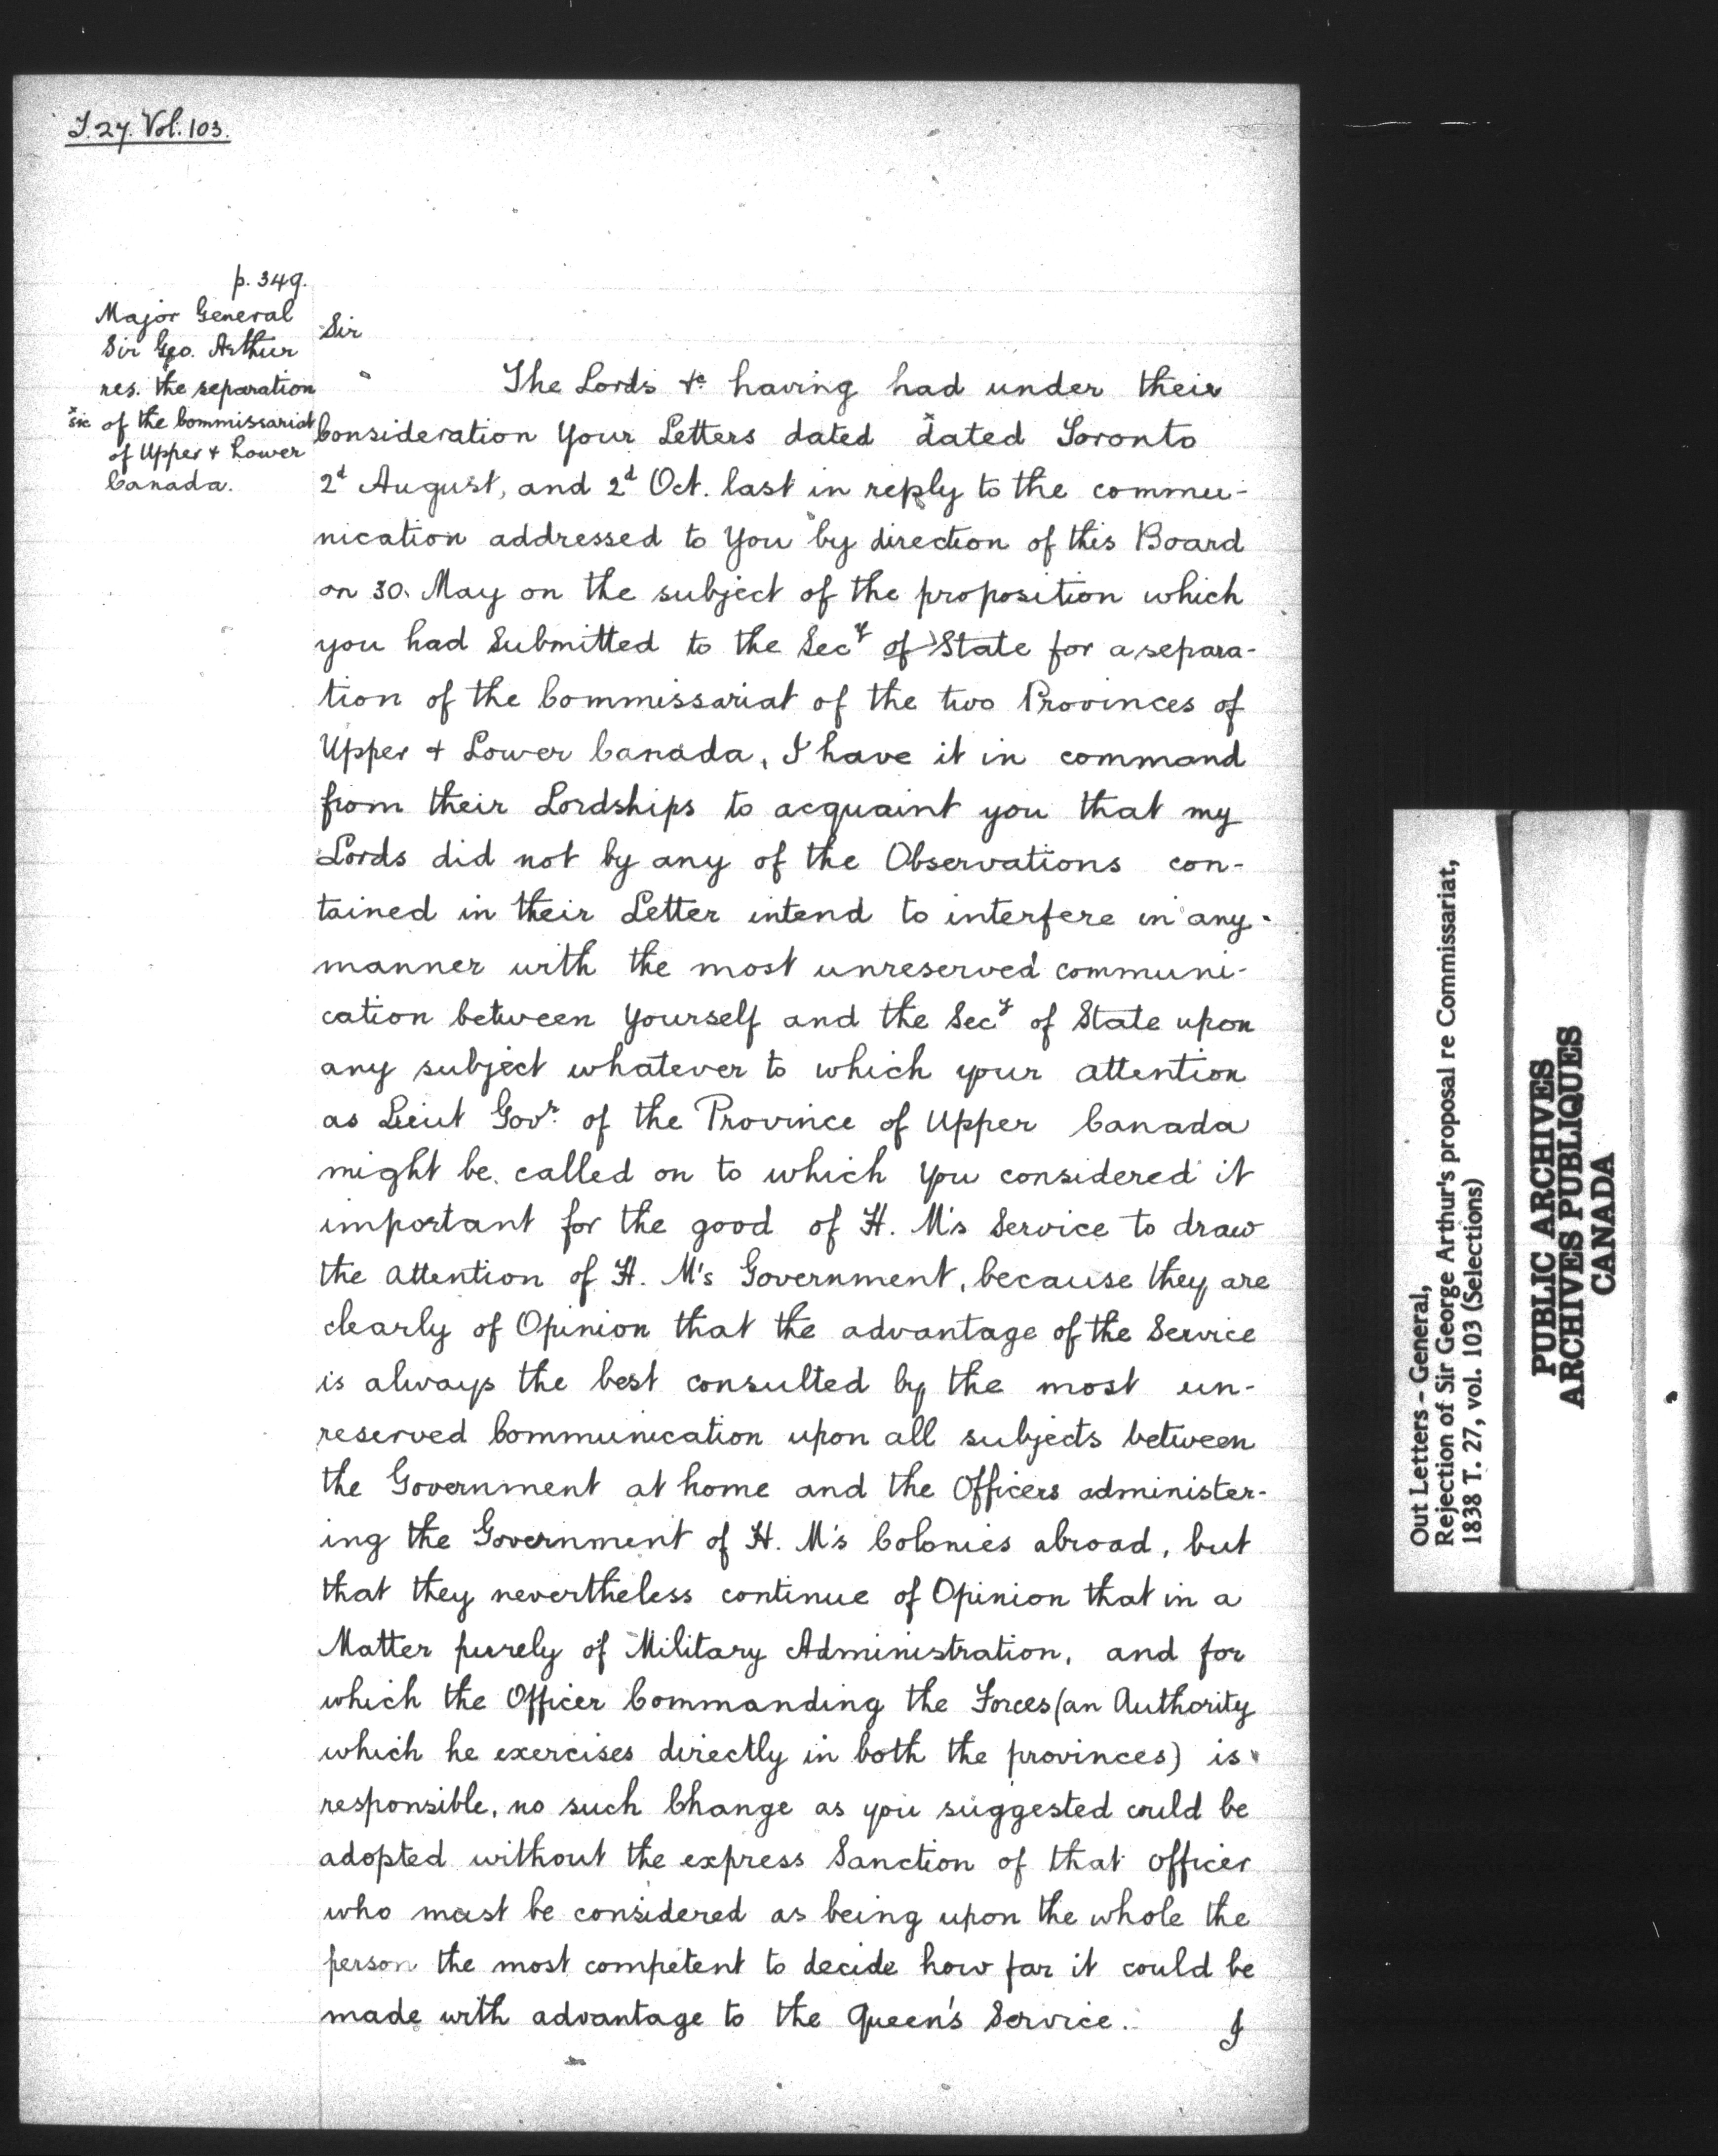 T. 27. Vol. 103.
p. 349.
Major General
Sir Geo. Arthur
res. the separation
x sic of the Commissariat
of Upper + Lower
Canada.
Sir
The Lords &c. having had under their
Consideration Your Letters dated x dated Toronto
2d August, and 2d Oct. last in reply to the commu-
nication addressed to You by direction of this Board
on 30. May on the subject of the proposition which
you had Submitted to the Secy of State for a separa-
tion of the Commissariat of the two Provinces of
Upper + Lower Canada, I have it in command
from their Lordships to acquaint you that my
Lords did not by any of the Observations con-
tained in their Letter intend to interfere in any
manner with the most unreserved communi-
cation between Yourself and the Secy of State upon
any subject whatever to which your attention
as Lieut Govr. of the Province of Upper Canada
might be called on to which You considered it
important for the good of H. M's Service to draw
the attention of H. M's Government, because they are
clearly of Opinion that the advantage of the Service
is always the best consulted by the most un-
reserved Communication upon all subjects between
the Government at home and the Officers administer-
ing the Government of H. M's Colonies abroad, but
that they nevertheless continue of Opinion that in a
Matter purely of Military Administration, and for
which the Officer Commanding the Forces (an Authority
which he exercises directly in both the provinces) is
responsible, no such Change as you suggested could be
adopted without the express Sanction of that officer
who must be considered as being upon the whole the
person the most competent to decide how far it could be
made with advantage to the Queen's Service. I
Out Letters - General,
Rejection of Sir George Arthur's proposal re Commissariat,
1838 T. 27, vol. 103 (Selections)
PUBLIC ARCHIVES
ARCHIVES PUBLIQUES
CANADA